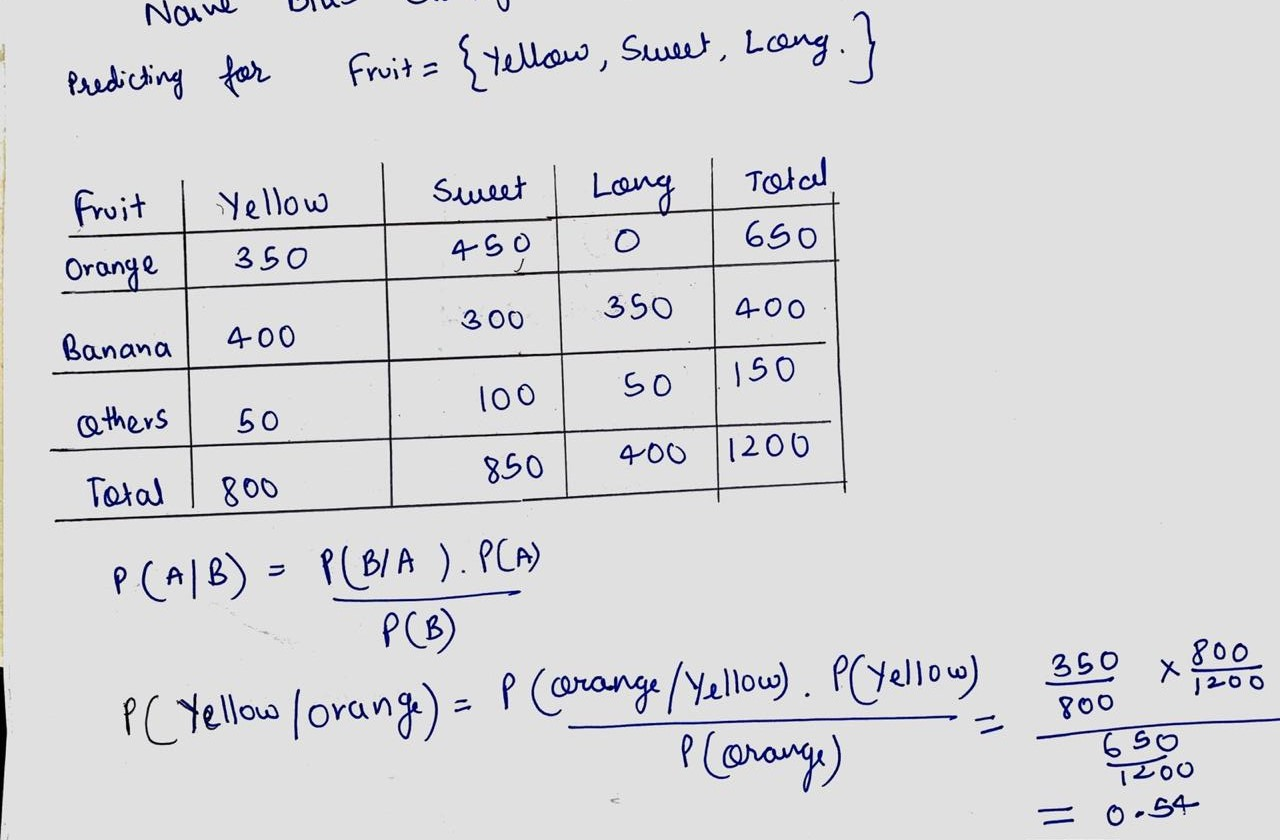 Predicting for Fruit = { Yellow, Sweet, Long. }
Fruit Yellow Sweet Long Total
Orange 350 450 0 650
Banana 400 300 350 400
Others 50 100 50 150
Total 800 850 400 1200
P(A|B) = P(B/A). P(A)
P(B)
P(Yellow/orange) = P(orange/Yellow). P(Yellow) = 350/800 × 800/1200
P(orange) 650/1200
= 0.54